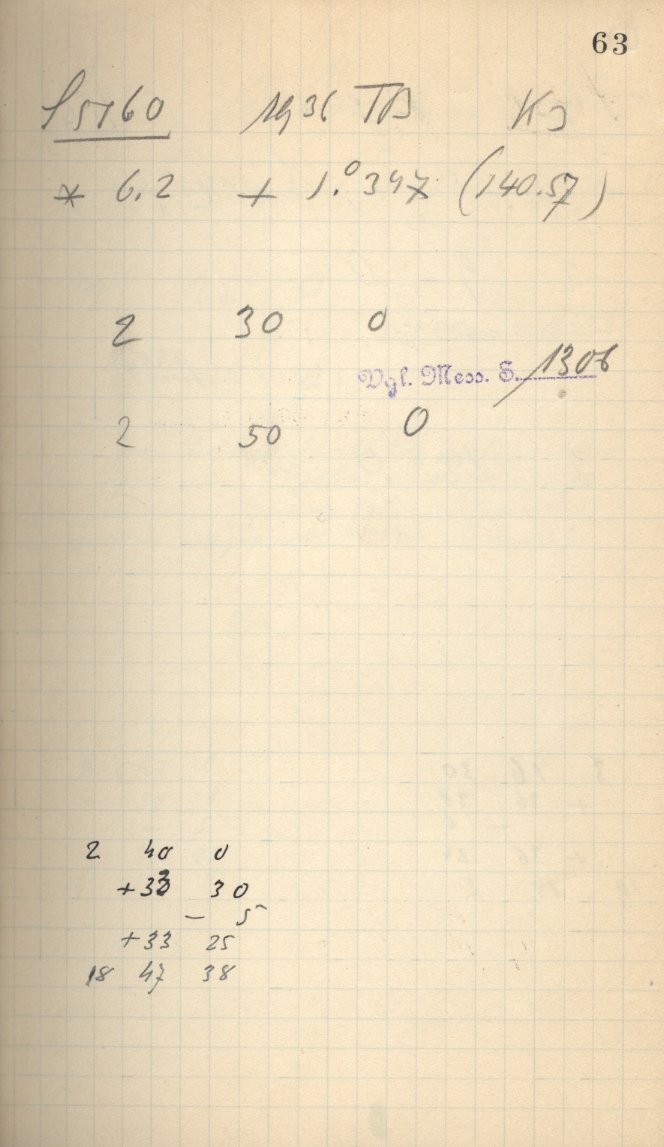 63
P 5160 1936 TB K3
* 6.2 + 1.°347 (140.57)
2 30 0
Vgl. Mess. S. 1306
2 50 0
2 40 0
+33 30
− 5
+33 25
18 47 38